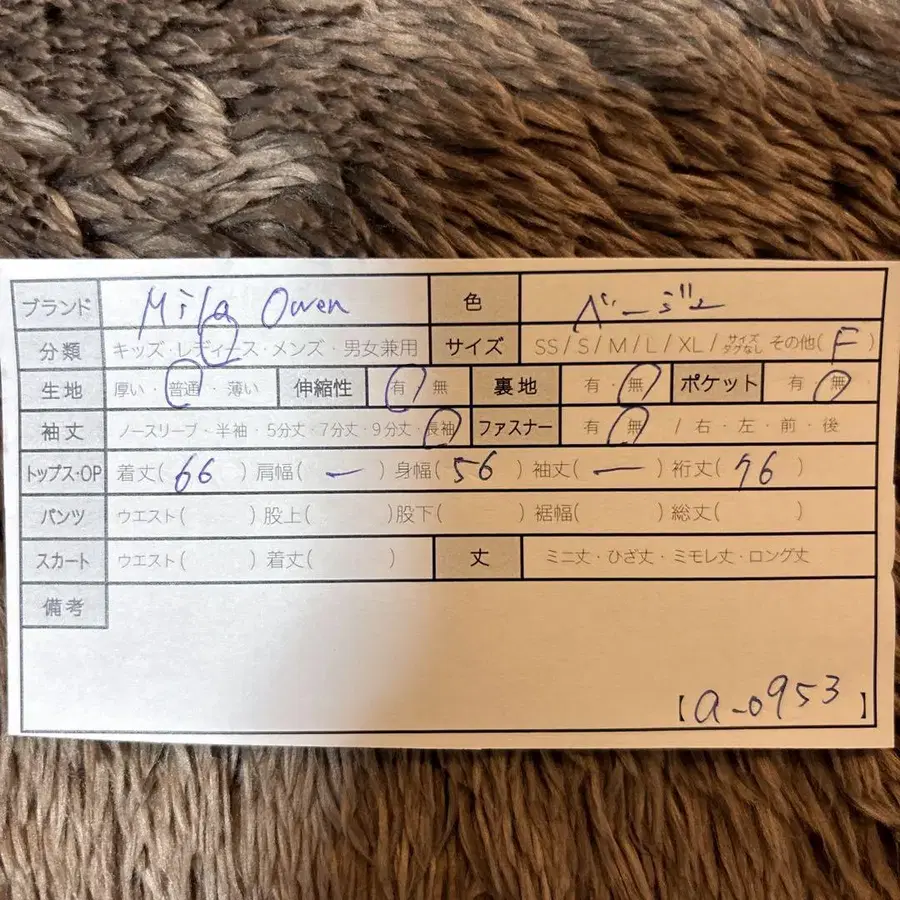 ブランド Mila Owen 色 ベージュ
分類 キッズ・レディース・メンズ・男女兼用 サイズ SS/S/M/L/XL/サイズタグなし その他(F)
生地 厚い・普通・薄い 伸縮性 有・無 裏地 有・無 ポケット 有・無
袖丈 ノースリーブ・半袖・5分丈・7分丈・9分丈・長袖 ファスナー 有・無 /右・左・前・後
トップス・OP 着丈(66) 肩幅(ー) 身幅(56) 袖丈(ー) 裄丈(76)
パンツ ウエスト( ) 股上( ) 股下( ) 裾幅( ) 総丈( )
スカート ウエスト( ) 着丈( ) 丈 ミニ丈・ひざ丈・ミモレ丈・ロング丈
備考
【a-0953】